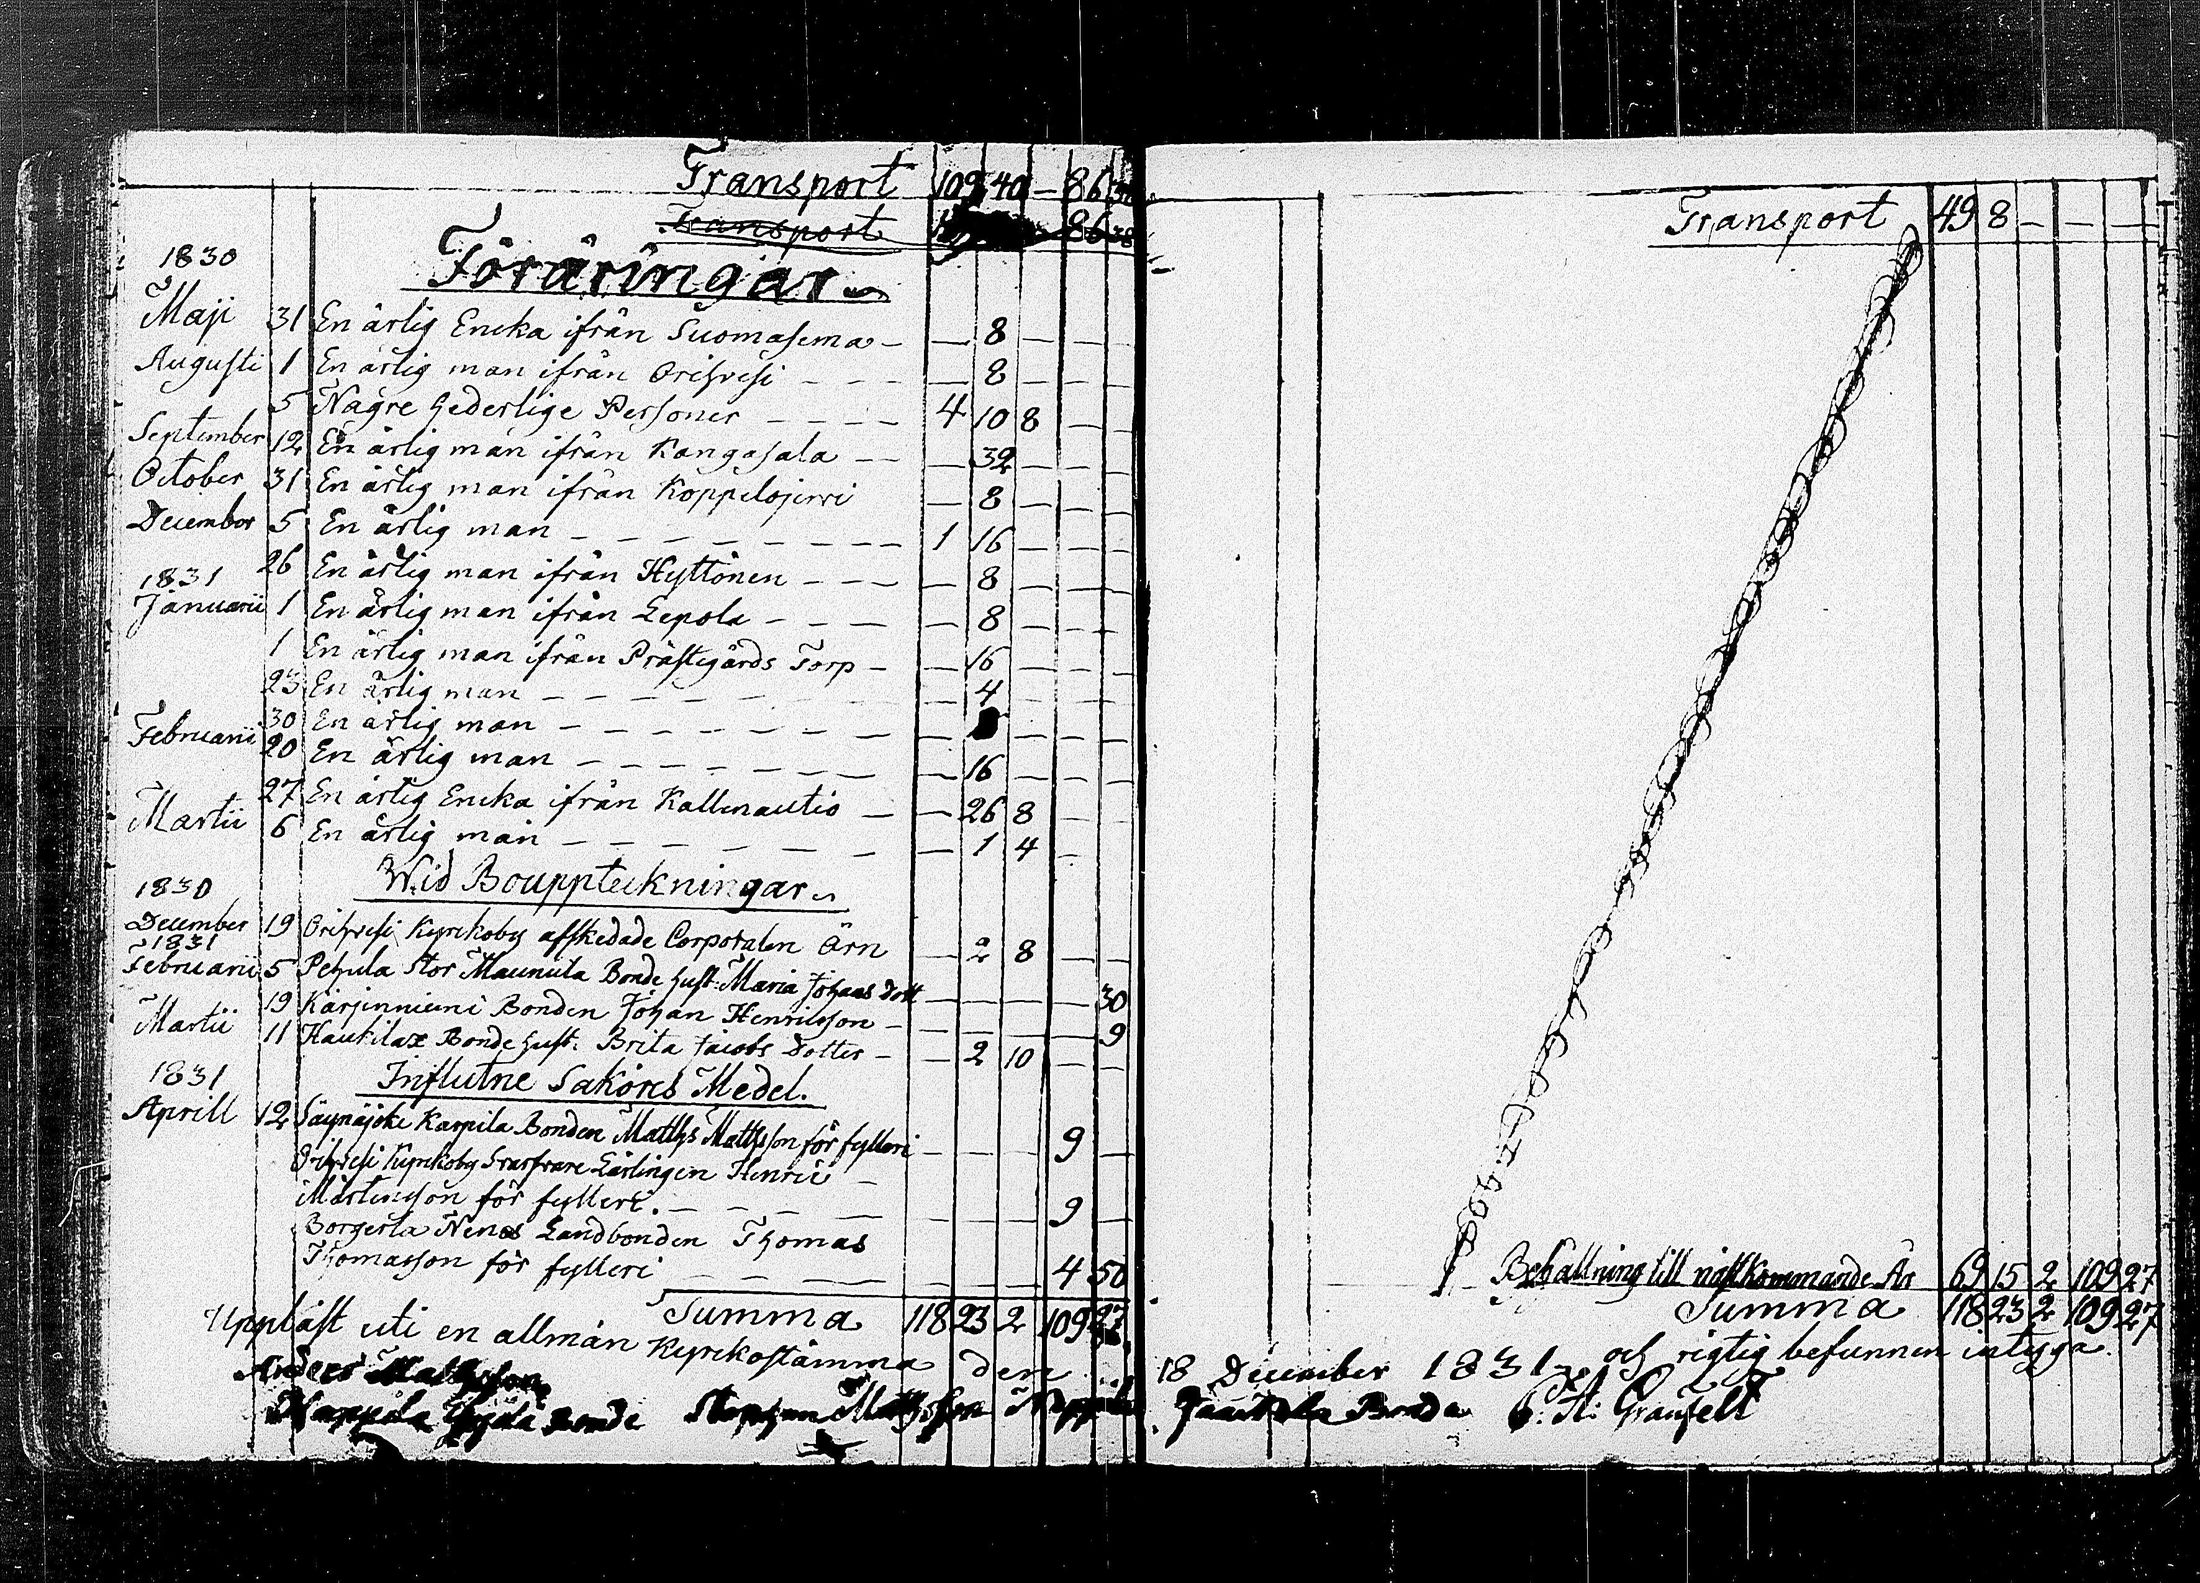 Transport 109 40 — 86 38
Transport 86 38
1830 Föräringar
Maji 31 En ärlig Encka ifrån Suomasema — — 8 — —
Augusti 1 En ärlig man ifrån Orihvesi — — — — 8 — — —
5 Någre hederlige Personer — — — — 4 10 8 — —
September 12 En ärlig man ifrån Kangasala — — — 32 — — —
October 31 En ärlig man ifrån Koppelojervi — 8 — — —
December 5 En ärlig man — — — — — — — — 1 16 — — —
26 En ärlig man ifrån Hyttönen — — — — 8 — — —
1831
Januarii 1 En ärlig man ifrån Lepola — — — — 8 — — —
1 En ärlig man ifrån Prästegårds Torp — — 16 — — —
23 En ärlig man — — — — — — 4 — — —
30 En ärlig man — — — — — — — — — — —
Februarii 20 En ärlig man — — — — — — — — 16 — — —
27 En ärlig Encka ifrån Kallenautio — — 26 8 — —
Martii 6 En ärlig man — — — — — — — 1 4 —
Wid Bouppteckningar
1830
December 19 Orihvesi Kyrckoby afskedade Corporalen Örn — 2 8 — —
1831
Februarii 5 Pehula Stor Maunula Bonde hust: Maria Johans Dott — — — — 30
19 Kärjinniemi Bonden Johan Henricsson — — — — — 9
Martii 11 Haukilax Bonde hust: Brita Jacobs Dotter — — 2 10 — —
1831 Influtne Saköres Medel.
Aprill 12 Säynäjoki Karpila Bonden Matths Mattsson för fylleri — — — 9 —
Orihvesi Kyrckoby Svarfvare Lärlingen Henric —
Mårtensson för fylleri. — — — — — — — 9 —
Borgerla Nenos Landbonden Thomas
Thomasson för fylleri — — — — — — — 4 50
Summa 118 23 2 109 27
Uppläst uti en allmän Kyrckostämma den
Anders Mattsson
Bonde
Transport 49 8 — — —
Behållning till nästkommande År 69 15 2 109 27
Summa 118 23 2 109 27
18 December 1831, och rigtig befunnen intyga.
Bonde